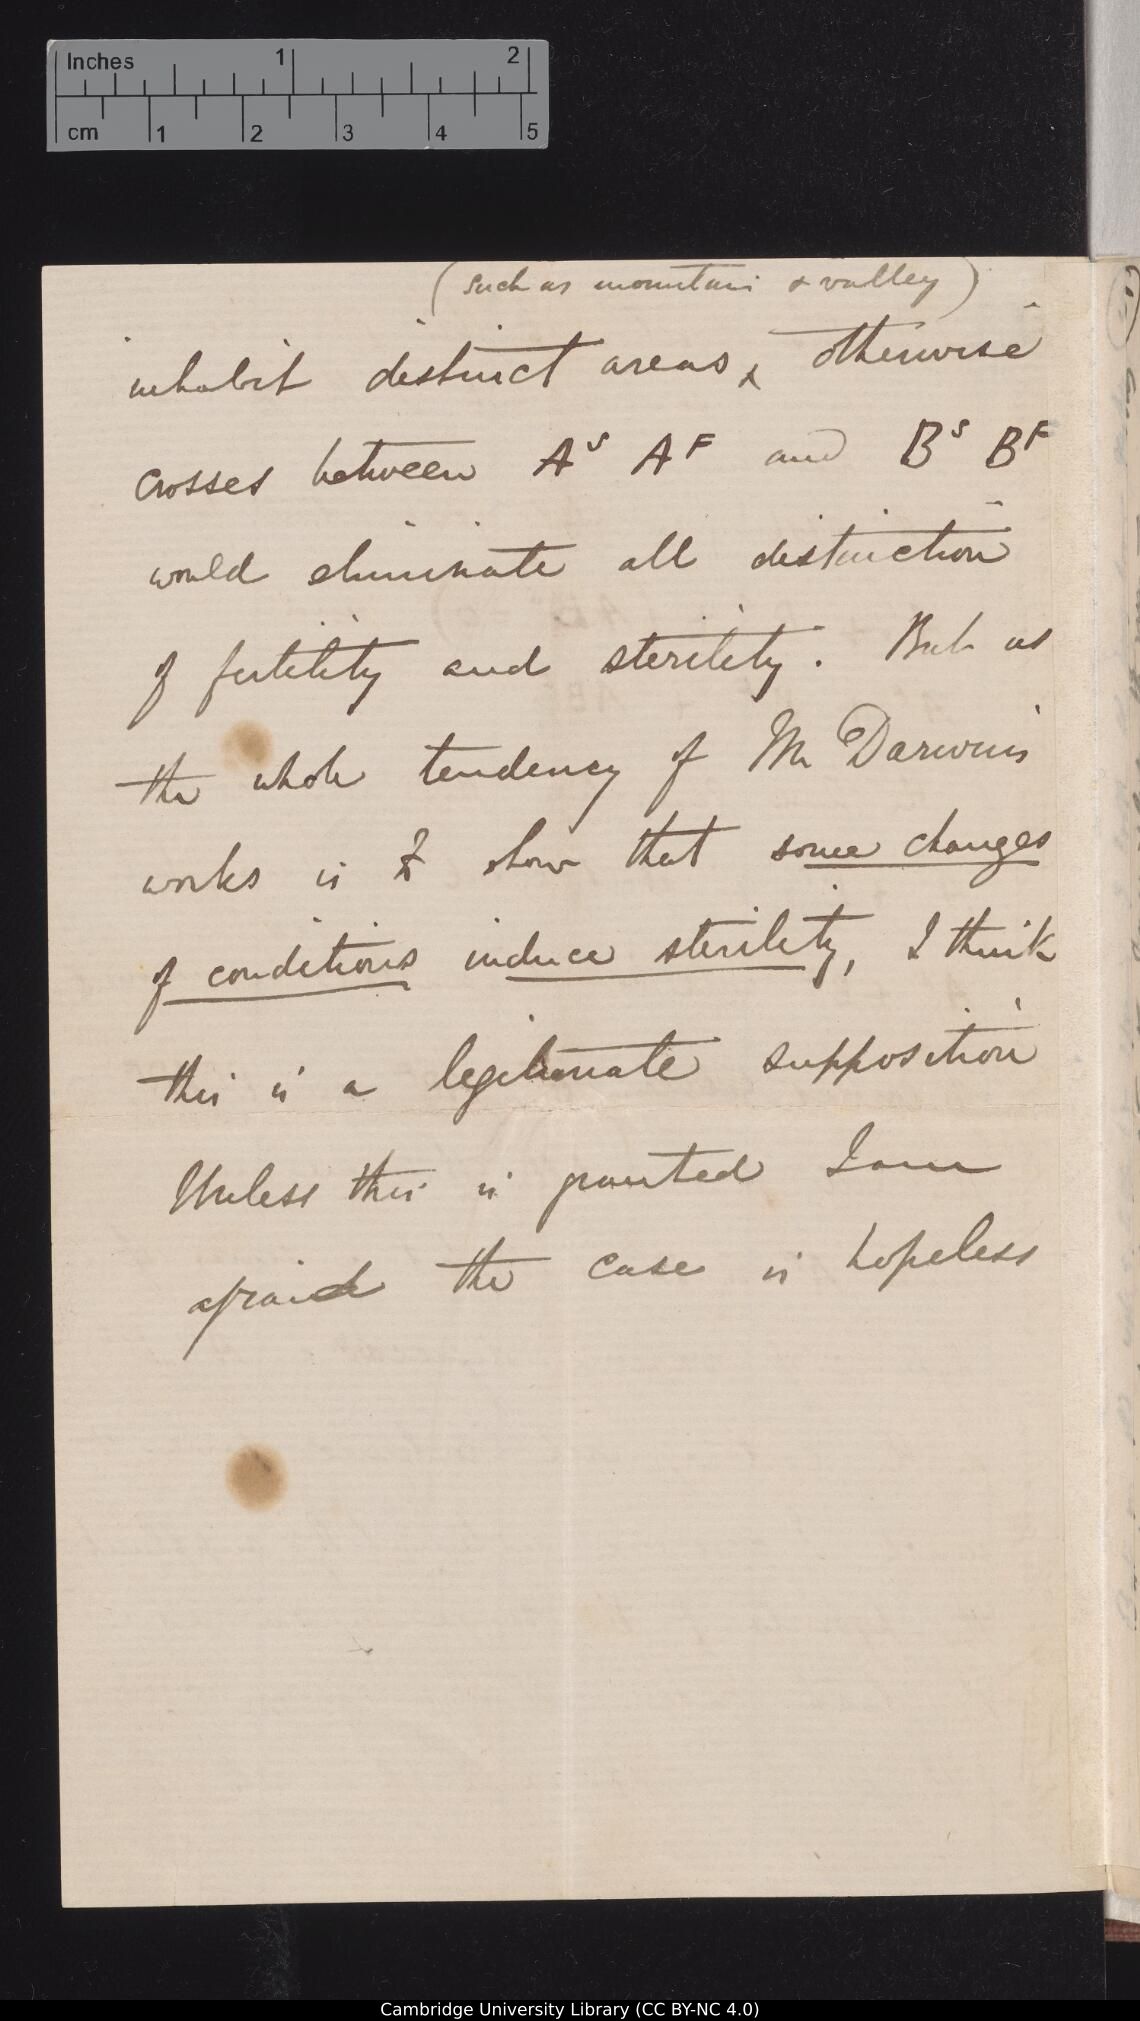 Inches 1 2
cm 1 2 3 4 5
(such as mountain & valley)
inhabit distinct areas, otherwise
crosses between Aˢ Aᶠ and Bˢ Bᶠ
would eliminate all distinction
of fertility and sterility. But as
the whole tendency of Mr Darwin's
works is to show that some changes
of conditions induce sterility, I think
this is a legitimate supposition
Unless this is granted I am
afraid the case is hopeless
Cambridge University Library (CC BY-NC 4.0)